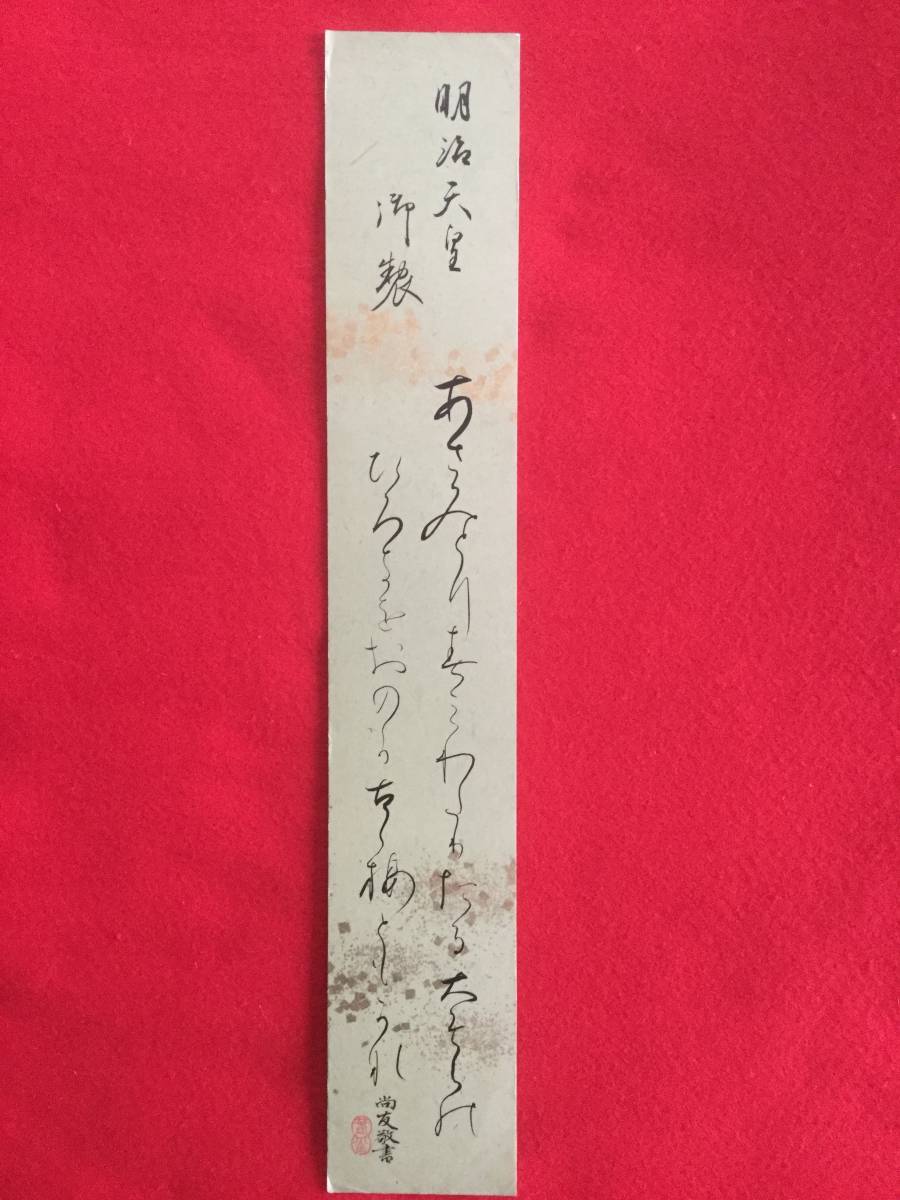 明治天皇
御製
あさみとりすみわたりたる大そらの
ひろきをおのかこゝろともかな
尚友敬書